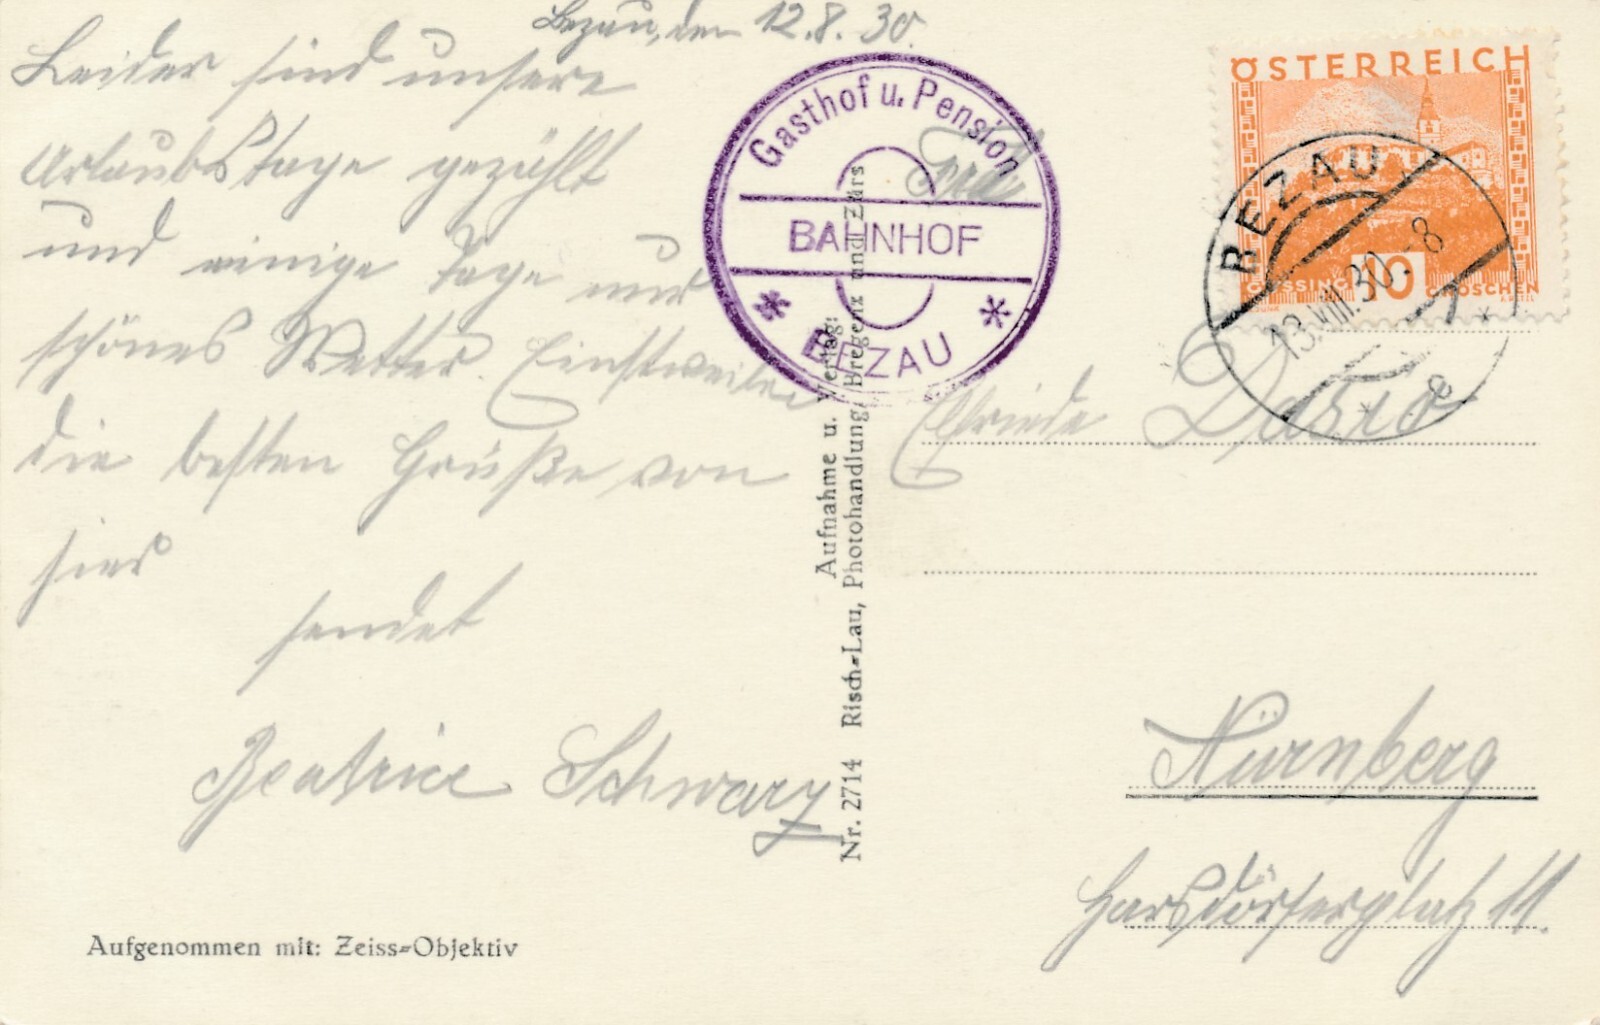 Bezau, den 12.8.30.
Leider sind unsere
Urlaubstage gezählt
und einige Tage nur
schönes Wetter. Einstweilen
die besten Grüße von
hier
sendet
Beatrice Schwarz
Aufgenommen mit: Zeiss-Objektiv
Gasthof u. Pension
BAHNHOF
* BEZAU *
Aufnahme u. Verlag:
Nr. 2714 Risch-Lau, Photohandlung, Bregenz und Zürs
ÖSTERREICH
GÜSSING 10 GROSCHEN
BEZAU
13.VIII.30.-8
* a *
Frl.
Elfriede
Nürnberg
Harsdörferplatz 11.